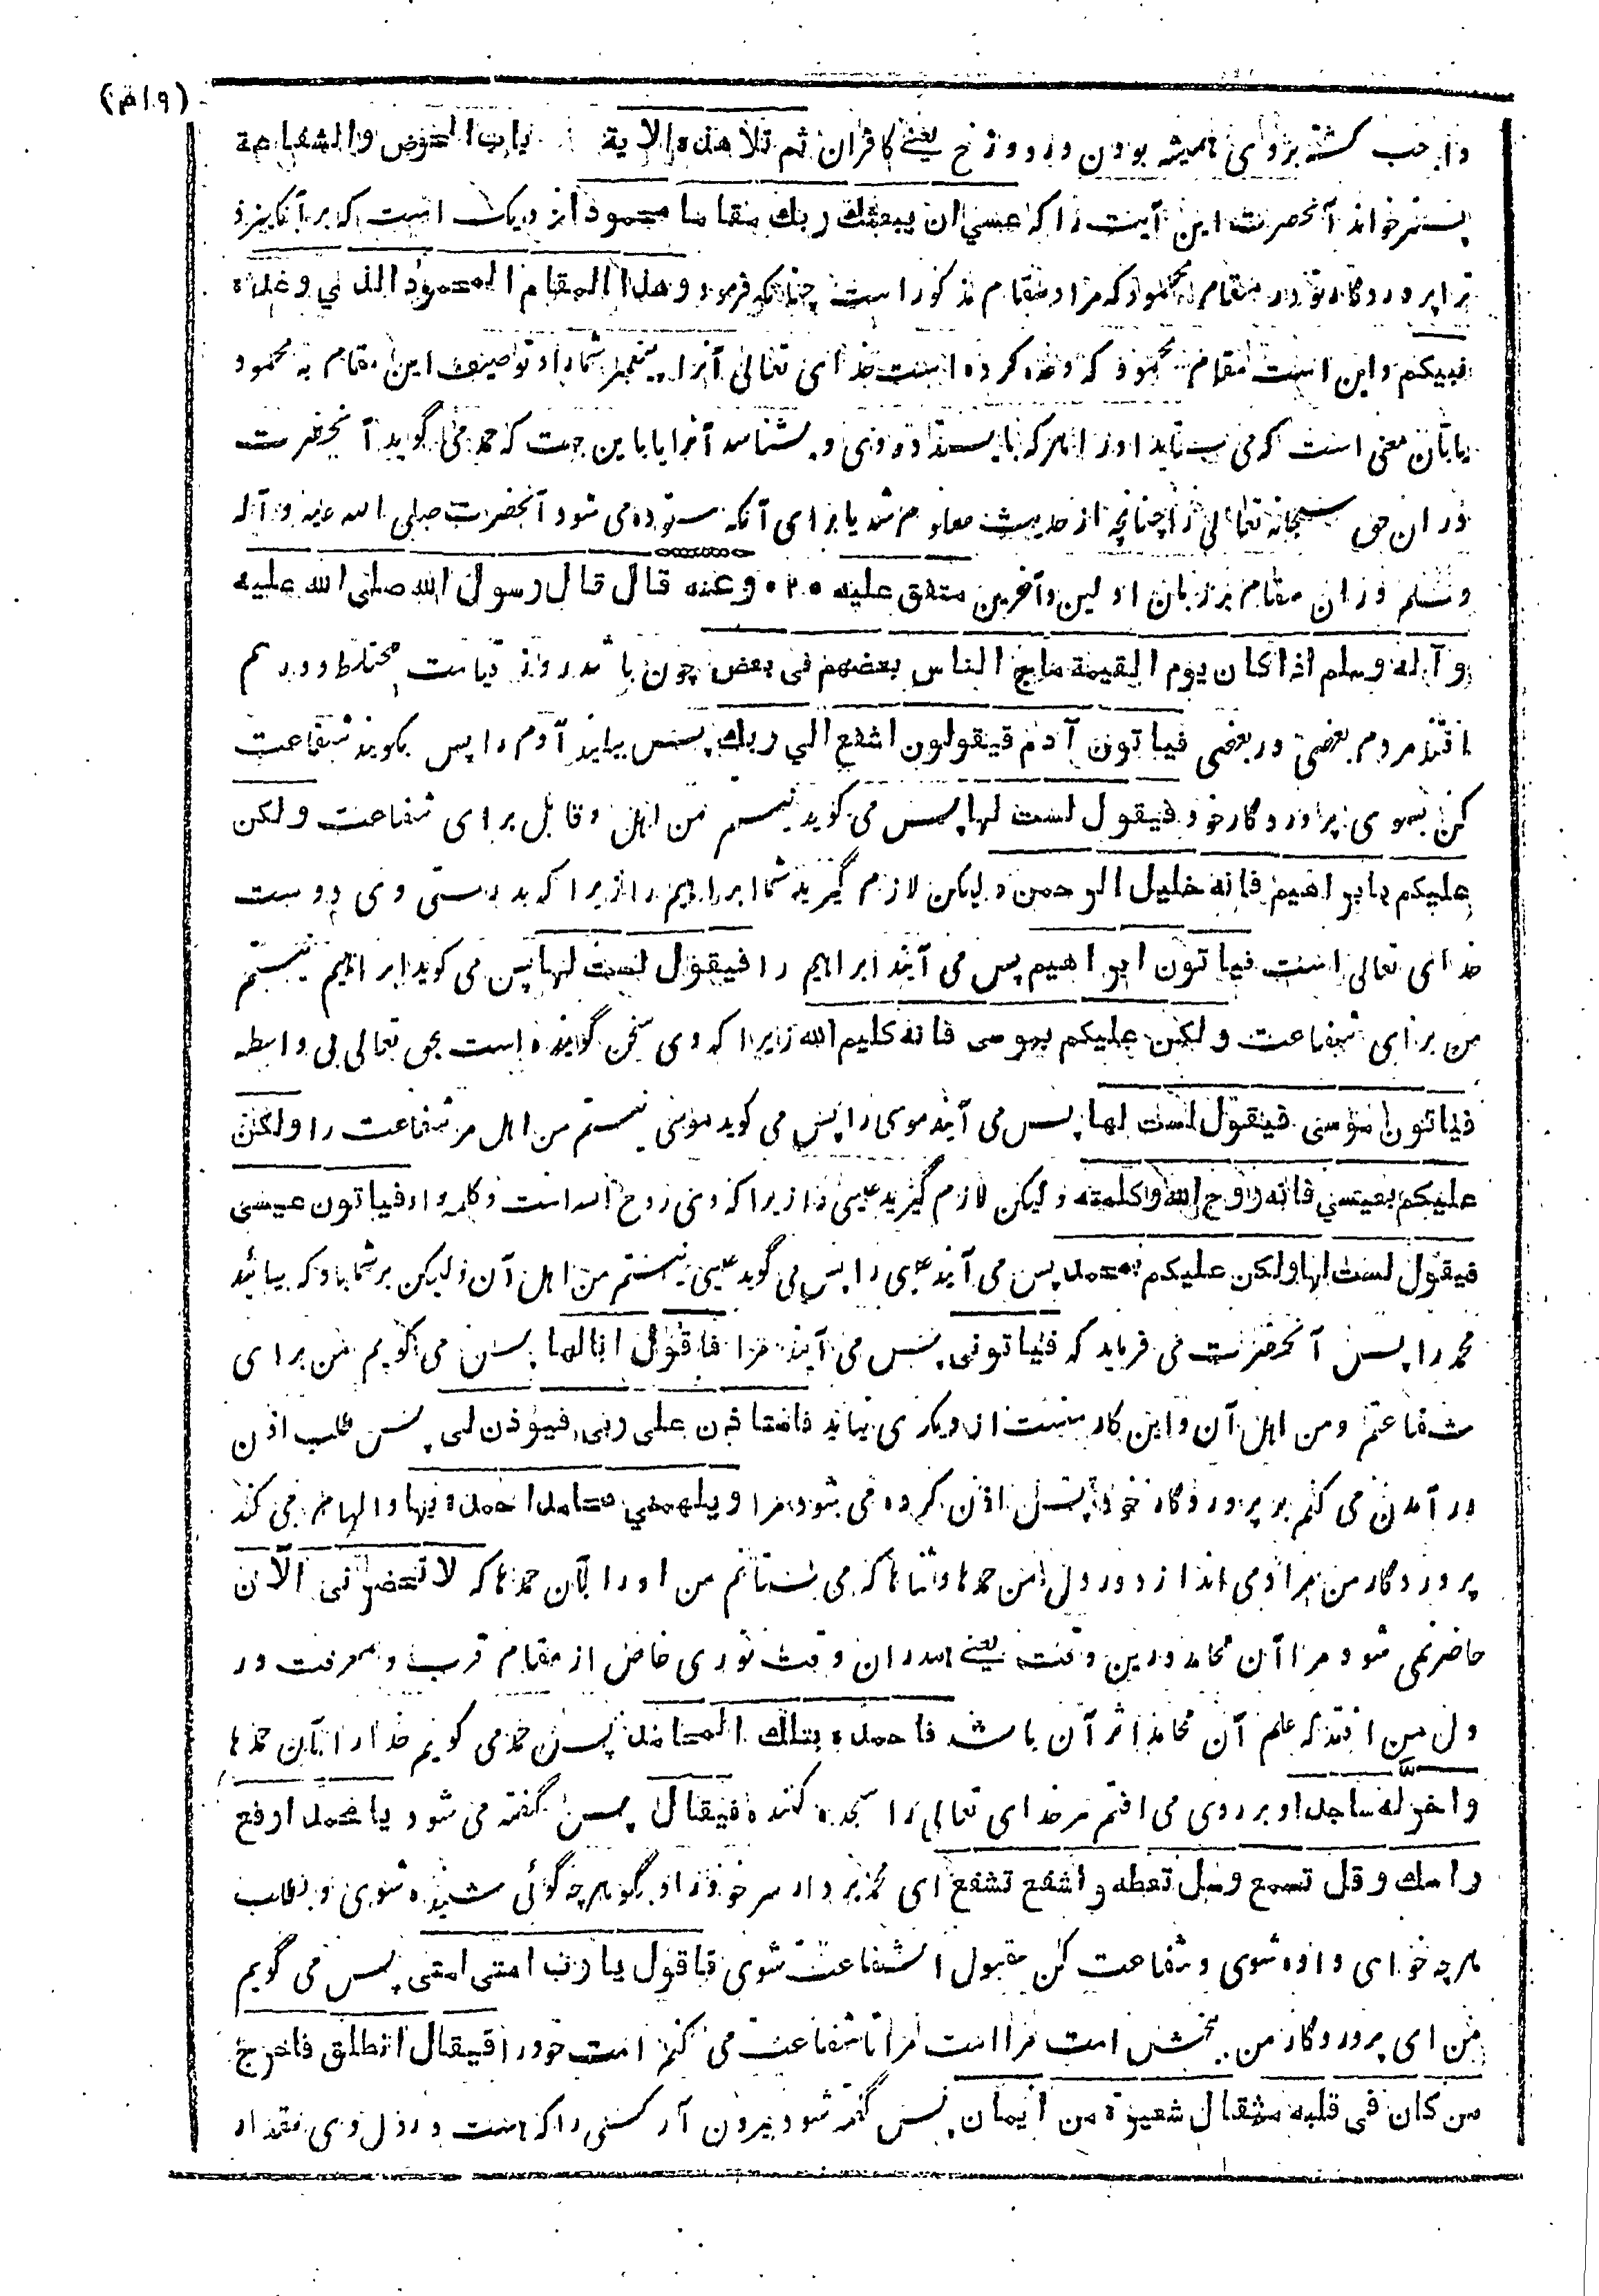 (۴۰۹)
واجب گشته بر وی همیشه بودن در دوزخ یعنے کافران ثم تلا هذه الاية باب الحوض والشفاعة
پستر خواند آنحضرت این آیت را که عسى ان يبعثك ربك مقاما محمودا نزدیک است که بر انگیزد
ترا پروردگار تو در مقام محمود که مراد مقام مذکور است چنانکه فرمود وهذا المقام المحمود الذي وعده
نبيكم و این است مقام محمود که وعده کرده است خدای تعالی آنرا پیغمبر شما را و توصیف این مقام به محمود
یا بآن معنی است که می ستاید او را هر که بایستد در وی و بشناسد آنرا یا باین جهت که حمد می گوید آنحضرت
در ان حق سبحانه تعالی را چنانچه از حدیث معلوم شد یا برای آنکه ستوده می شود آنحضرت صلی الله علیه و آله
وسلم در ان مقام بر زبان اولین و آخرین متفق عليه ۲۰ وعنه قال قال رسول الله صلى الله عليه
وآله وسلم اذا كان يوم القيمة ماج الناس بعضهم فى بعض چون باشد روز قیامت مختلط و درهم
افتند مردم بعضی در بعضی فياتون آدم فيقولون اشفع الي ربك پس بیایند آدم را پس بگویند شفاعت
کن بسوی پروردگار خود فيقول لست لها پس می گوید نیستم من اهل و قابل برای شفاعت ولكن
عليكم بابراهيم فانه خليل الرحمن ولیکن لازم گیرید شما ابراهیم را زیرا که بدرستی وی دوست
خدای تعالی است فياتون ابراهيم پس می آیند ابراهیم را فيقول لست لها پس می گوید ابراهیم نیستم
من برای شفاعت ولكن عليكم بموسى فانه كليم الله زیرا که وی سخن گوینده است بحق تعالی بی واسطه
فياتون موسى فيقول لست لها پس می آیند موسی را پس می گوید موسی نیستم من اهل مر شفاعت را ولكن
عليكم بعيسي فانه روح الله وكلمته ولیکن لازم گیرید عیسی را زیرا که وی روح الله است و کلمه او فياتون عيسى
فيقول لست لها ولكن عليكم بمحمد پس می آیند عیسی را پس می گوید عیسی نیستم من اهل آن ولیکن بر شما باد که بیائید
محمد را پس آنحضرت می فرماید که فياتونى پس می آیند مرا فاقول انا لها پس می گویم من برای
شفاعتم و من اهل آن و این کار منست از دیگری نیاید فاستاذن على ربى فيؤذن لى پس طلب اذن
در آمدن می کنم بر پروردگار خود پس اذن کرده می شود مرا ويلهمني محامد احمده بها و الهام می کند
پروردگار من مرا و می اندازد در دل من حمدها و ثناها که می ستایم من او را بآن حمدها که لا تحضرنى الآن
حاضر نمی شود مرا آن محامد درین وقت یعنے در ان وقت نوری خاص از مقام قرب و معرفت در
دل من افتد که علم آن محامد اثر آن باشد فاحمده بتلك المحامد پس حمد می گویم خدا را بآن حمدها
واخر له ساجدا و بر روی می افتم مر خدای تعالی را سجده کننده فيقال پس گفته می شود يا محمد ارفع
راسك وقل تسمع وسل تعطه واشفع تشفع ای محمد بردار سر خود را و بگو هرچه گوئی شنیده شوی و بطلب
هرچه خواهی داده شوی و شفاعت کن مقبول الشفاعت شوی فاقول يا رب امتى امتى پس می گویم
من ای پروردگار من بخش امت مرا امت مرا تا شفاعت می کنم امت خود را فيقال انطلق فاخرج
من كان فى قلبه مثقال شعيرة من ايمان پس گفته شود بیرون آر کسی را که هست در دل وی مقدار